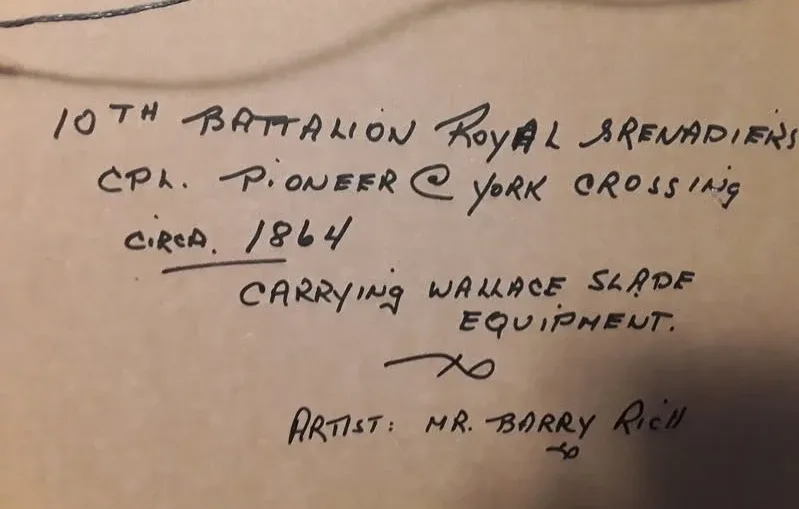 10TH BATTALION ROYAL GRENADIERS
CPL. PIONEER @ YORK CROSSING
CIRCA. 1864
CARRYING WALLACE SLADE
EQUIPMENT.
ARTIST: MR. BARRY RICH